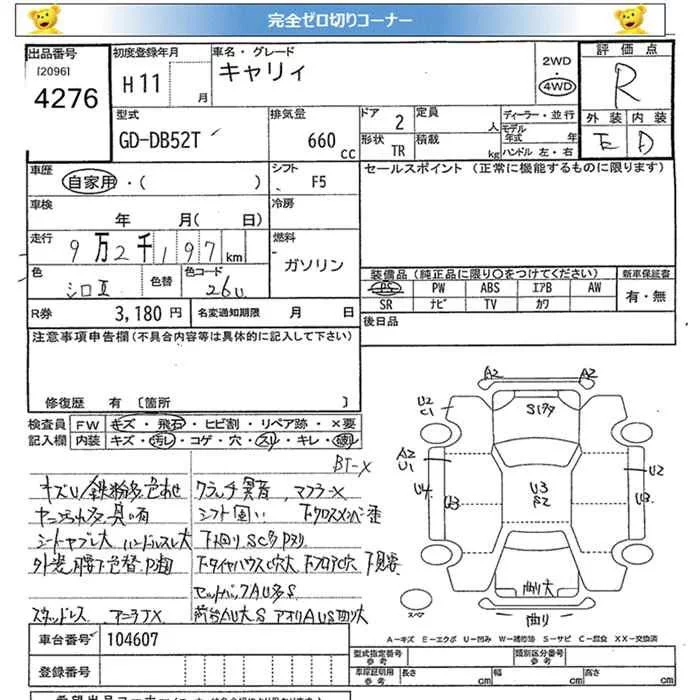 完全ゼロ切りコーナー
出品番号
[2096]
4276
初度登録年月
H11 月
車名・グレード
キャリィ
2WD
4WD
評価点
R
外装 内装
E D
型式
GD-DB52T
排気量
660 cc
ドア 2
形状 TR
定員 人
積載 kg
ディーラー・並行
モデル年式 年
ハンドル 左・右
車歴
自家用・( )
シフト
F5
セールスポイント (正常に機能するものに限ります)
車検
年 月( 日)
冷房
走行
9万2千197km
燃料
ガソリン
色
シロⅡ
色替
色コード
26u
装備品(純正品に限り○をつけてください)
PS PW ABS エアB AW
SR ナビ TV カワ
新車保証書
有・無
R券 3,180 円
名変通知期限 月 日
後日品
注意事項申告欄(不具合内容等は具体的に記入して下さい)
修復歴 有 [箇所 ]
検査員記入欄
FW キズ・飛石・ヒビ割・リペア跡・×要
内装 キズ・汚レ・コゲ・穴・スリ・キレ・破レ
BT-X
キズU/鉄粉多 色あせ
クラッチ異音、マフラーX
シフト固い
シートヤブレ大 ハンドルスレ大
下回りSC多
スタッドレス
A2
A2
U2
C1
A2
U1
U4
U3
U3
S2
U2
U3
曲り大
曲り
スペア
A-キズ E-エクボ U-凹み W-補修跡 S-サビ C-腐食 XX-交換済
車台番号 104607
登録番号
型式指定番号 参考
類別区分番号 参考
車庫証明用 参考
長さ cm
幅 cm
高さ cm